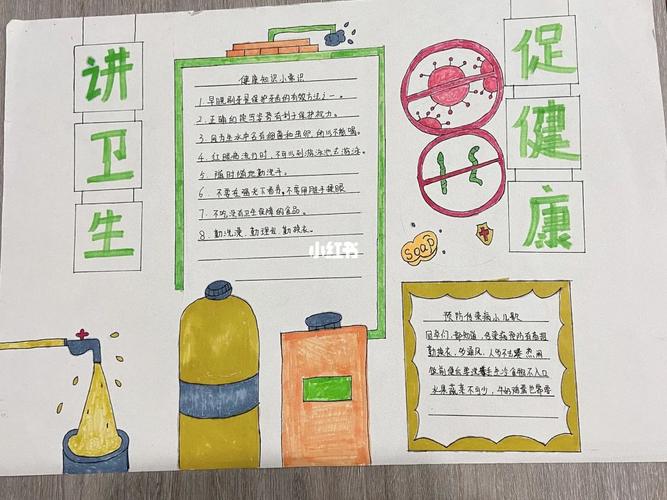 讲卫生
促健康
健康知识小常识
1. 早晚刷牙是保护牙齿的有效方法之一。
2. 正确的读写姿势有利于保护视力。
3. 因为生水中含有细菌和虫卵,所以不能喝。
4. 红眼病流行时,不可以到游泳池去游泳。
5. 随时随地勤洗手。
6. 不要在强光下看书,不常用脏手揉眼
7. 不吃没有卫生保障的食品。
8. 勤洗澡、勤理发、勤换衣。
小红书
soap
预防传染病小儿歌
同学们,都知道,传染病预防有高招
勤换衣,多通风,人多不去凑热闹
饭前便后要洗手 生冷食物不入口
水果蔬菜不可少,牛奶鸡蛋也需要